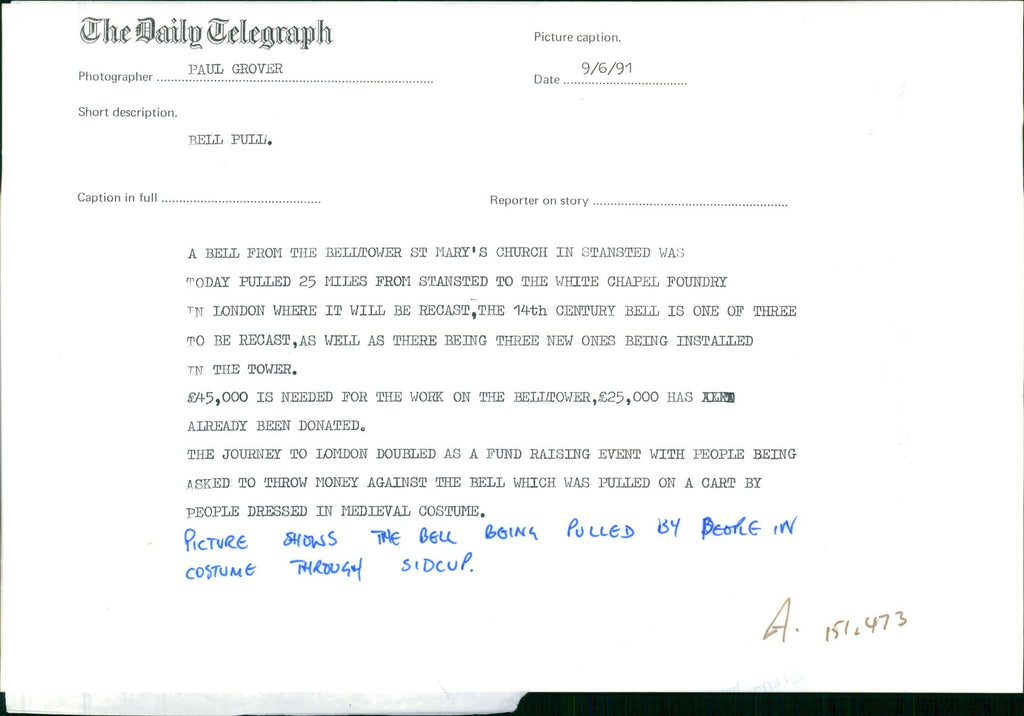 The Daily Telegraph
Picture caption.
Photographer PAUL GROVER
Date 9/6/91
Short description.
BELL PULL.
Caption in full
Reporter on story
A BELL FROM THE BELLTOWER ST MARY'S CHURCH IN STANSTED WAS
TODAY PULLED 25 MILES FROM STANSTED TO THE WHITE CHAPEL FOUNDRY
IN LONDON WHERE IT WILL BE RECAST,THE 14th CENTURY BELL IS ONE OF THREE
TO BE RECAST,AS WELL AS THERE BEING THREE NEW ONES BEING INSTALLED
IN THE TOWER.
£45,000 IS NEEDED FOR THE WORK ON THE BELLTOWER,£25,000 HAS
ALREADY BEEN DONATED.
THE JOURNEY TO LOMDON DOUBLED AS A FUND RAISING EVENT WITH PEOPLE BEING
ASKED TO THROW MONEY AGAINST THE BELL WHICH WAS PULLED ON A CART BY
PEOPLE DRESSED IN MEDIEVAL COSTUME.
PICTURE SHOWS THE BELL BEING PULLED BY PEOPLE IN
COSTUME THROUGH SIDCUP.
A. 151.473